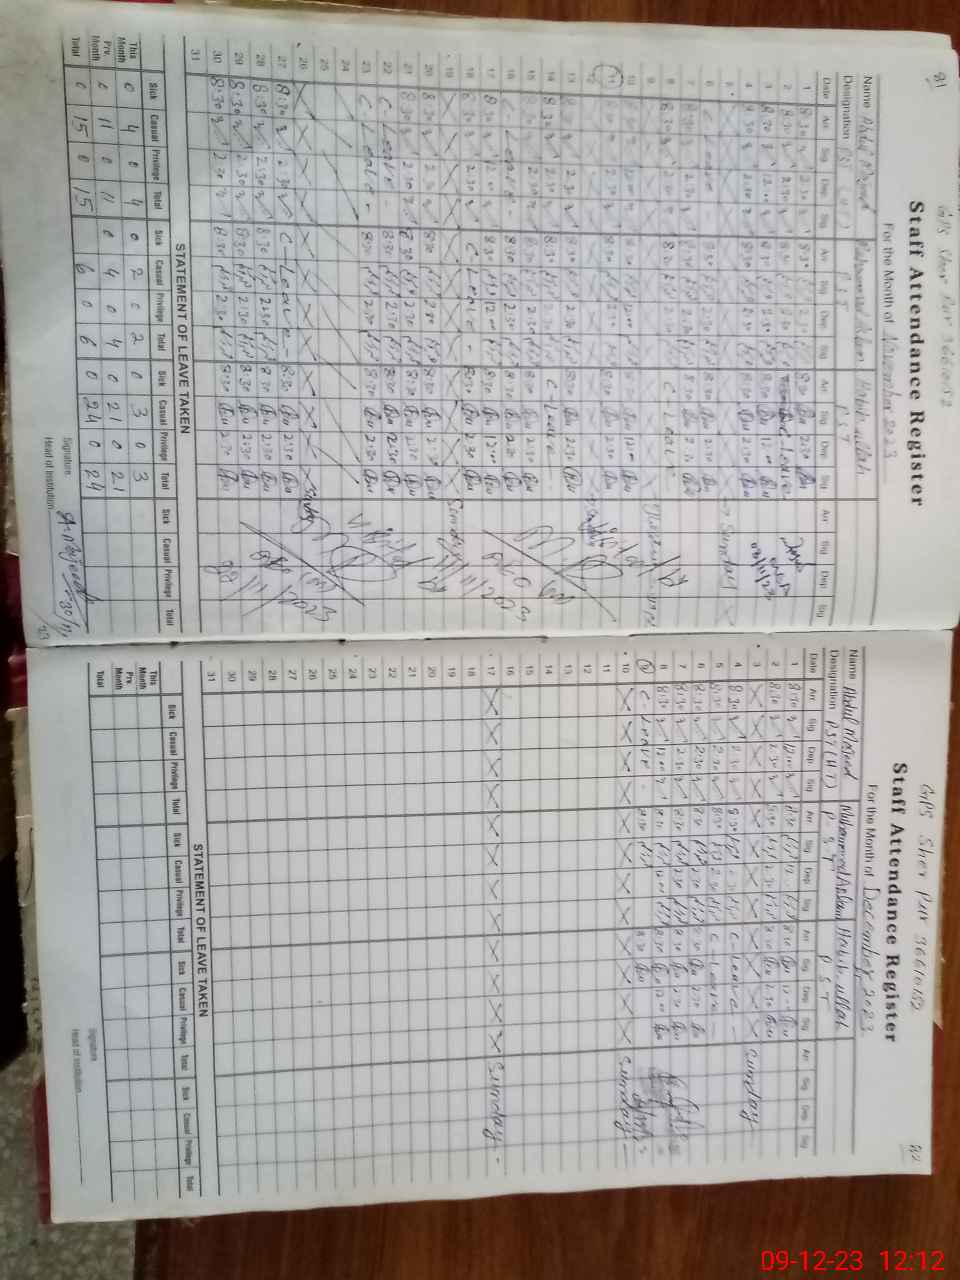 81
GPS Sher Pur 36610152
Staff Attendance Register
For the Month of November 2023
Name Abdul Majeed Muhammad Aslam Habib ullah
Designation PST (HT) P.S.T P.S.T
Date Arr Sig Dep. Sig Arr Sig Dep. Sig Arr Sig Dep. Sig Arr Sig Dep. Sig
1 8:30 2:30 8:30 2:30 8:30 2:30
2 8:30 2:30 8:30 2:30 Leave
3 8:30 12:00 8:30 12:00 8:30 12:00
4 8:30 2:30 8:30 2:30 8:30 2:30
5 Sunday
6 C-Leave 8:30 2:30 8:30 2:30
7 8:30 2:30 8:30 2:30 8:30 2:30
8 8:30 2:30 8:30 2:30 C-Leave
9
10 8:30 12:00 8:30 12:00 8:30 12:00
11 8:30 2:30 8:30 2:30 8:30 2:30
12
13 8:30 2:30 8:30 2:30 8:30 2:30
14 8:30 2:30 8:30 2:30 C-Leave
15 8:30 2:30 8:30 2:30 8:30 2:30
16 C-Leave - 8:30 2:30 8:30 2:30
17 8:30 12:00 8:30 12:00 8:30 12:00
18 8:30 2:30 C-Leave - 8:30 2:30
19 Sunday
20 8:30 2:30 8:30 2:30 8:30 2:30
21 8:30 2:30 8:30 2:30 8:30 2:30
22 C-Leave - 8:30 2:30 8:30 2:30
23 C-Leave - 8:30 2:30 8:30 2:30
24
25
26 Sunday
27 8:30 2:30 C-Leave - 8:30 2:30
28 8:30 2:30 8:30 2:30 8:30 2:30
29 8:30 2:30 8:30 2:30 8:30 2:30
30 8:30 2:30 8:30 2:30 8:30 2:30
31
STATEMENT OF LEAVE TAKEN
Sick Casual Privilege Total Sick Casual Privilege Total Sick Casual Privilege Total Sick Casual Privilege Total
This Month 0 4 0 4 0 2 0 2 0 3 0 3
Prv. Month 0 11 0 11 0 4 0 4 0 21 0 21
Total 0 15 0 15 0 6 0 6 0 24 0 24
Signature
Head of Institution
82
GPS Sher Pur 36610152
Staff Attendance Register
For the Month of December, 2023
Name Abdul Majeed Muhammad Aslam Habib ullah
Designation PST (HT) P-S-T P S T
Date Arr Sig Dep. Sig Arr Sig Dep. Sig Arr Sig Dep. Sig Arr Sig Dep Sig
1 8:30 12:00 8:30 12:00 8:30 12:00
2 8:30 2:30 8:30 2:30 8:30 2:30
3 Sunday
4 8:30 2:30 8:30 2:30 C-Leave -
5 8:30 2:30 8:30 2:30 C-Leave
6 8:30 2:30 8:30 2:30 8:30 2:30
7 8:30 2:30 8:30 2:30 8:30 2:30
8 8:30 12:00 8:30 12:00 8:30 12:00
9 C-Leave - 8:30 8:30
10 Sunday -
11
12
13
14
15
16
17 Sunday -
18
19
20
21
22
23
24
25
26
27
28
29
30
31
STATEMENT OF LEAVE TAKEN
Sick Casual Privilege Total Sick Casual Privilege Total Sick Casual Privilege Total Sick Casual Privilege Total
This Month
Prv. Month
Total
Signature
Head of Institution
09-12-23 12:12